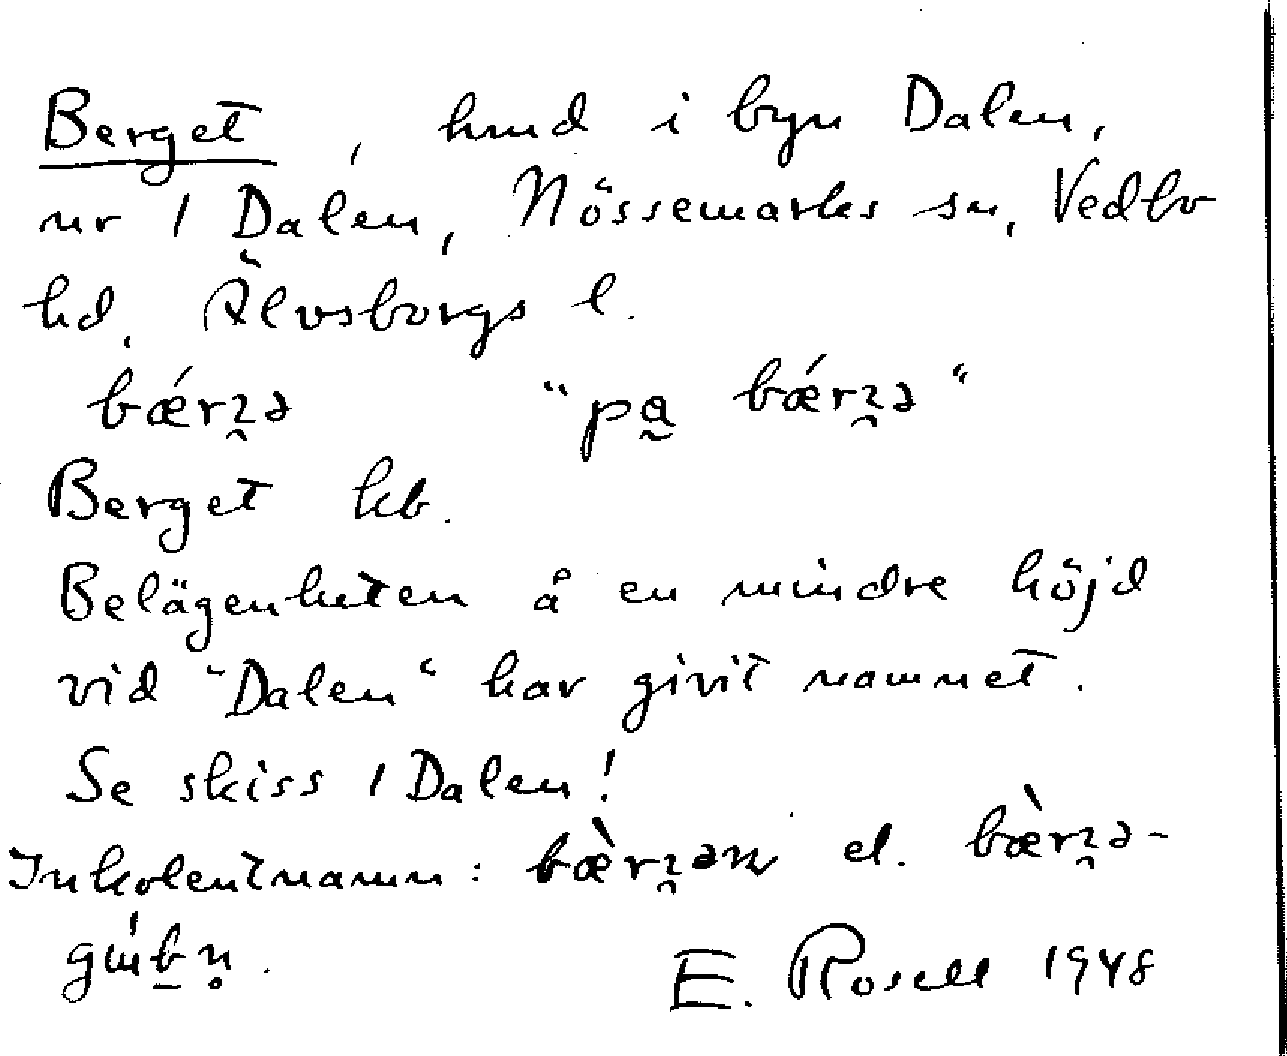 Berget, hmd i byn Dalen,
nr 1 Dalen, Nössemarks sn, Vedbo
hd, Älvsborgs l.
bǽrʒ̯ə "pa̰ bǽrʒ̯ə"
Berget kb.
Belägenheten å en mindre höjd
vid "Dalen" har givit namnet.
Se skiss 1 Dalen!
Inkolentnamn: bæ̀rʒ̯ən el. bæ̀rʒ̯ə-
gɯ́b̠n̥.
E. Rosell 1948